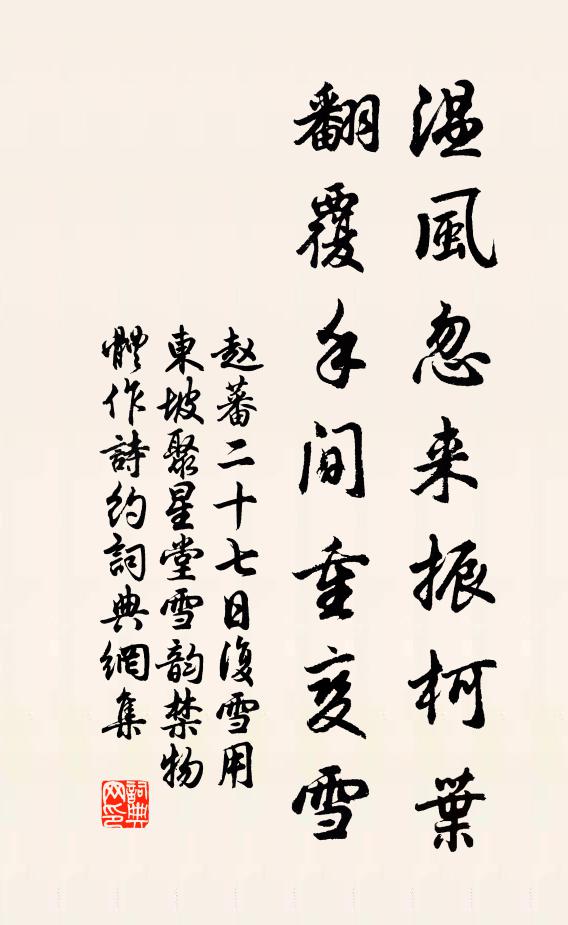 温風忽来振柯葉
翻覆手间重变雪
赵蕃二十七日復雪用
東坡聚星堂雪韵禁物
體作詩约詞典網集
詞典
网印